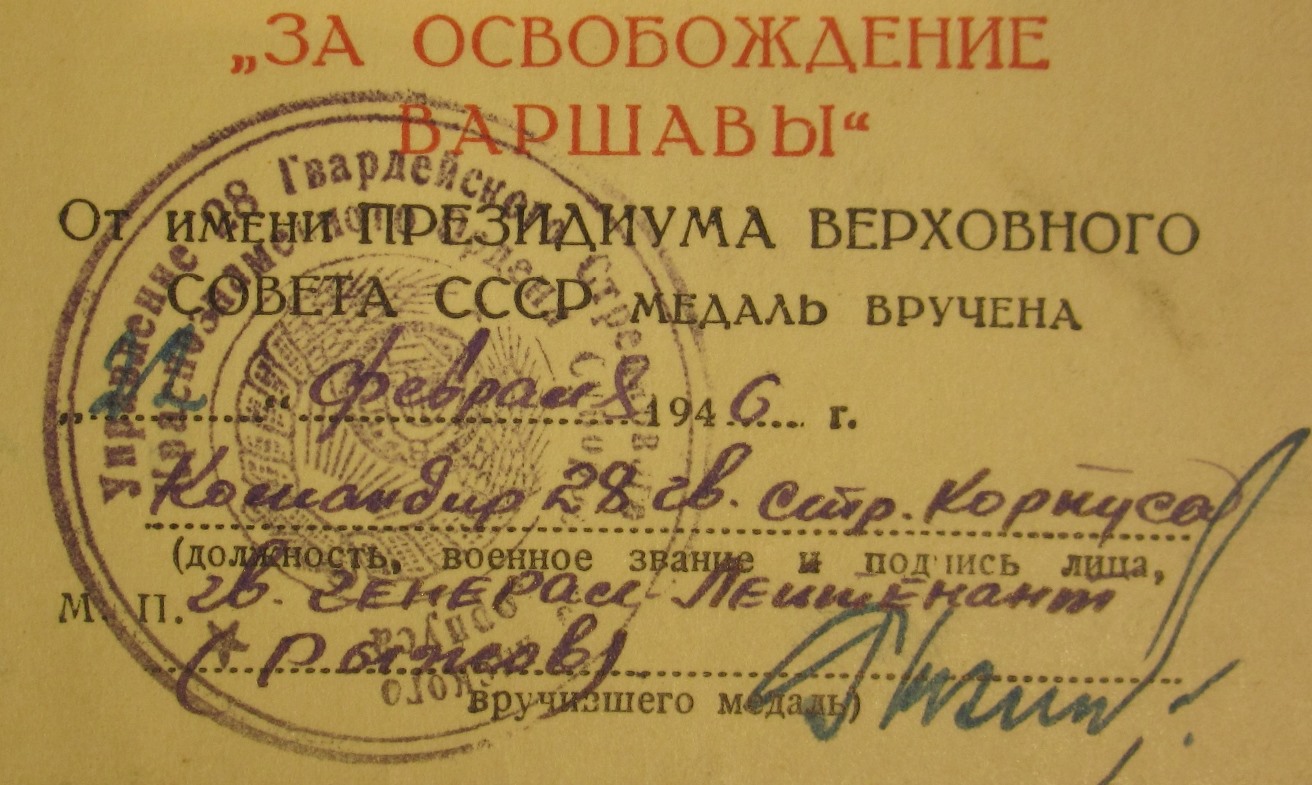 „ЗА ОСВОБОЖДЕНИЕ
ВАРШАВЫ“
От имени ПРЕЗИДИУМА ВЕРХОВНОГО
СОВЕТА СССР МЕДАЛЬ ВРУЧЕНА
„21“ февраля 1946 г.
Командир 28 гв. стр. Корпуса
(должность, военное звание и подпись лица,
М. П. гв. генерал Лейтенант
(Рыжов)
вручившего медаль)
Управление 28 Гвардейского Стрелкового
Краснознаменного ордена
Корпуса